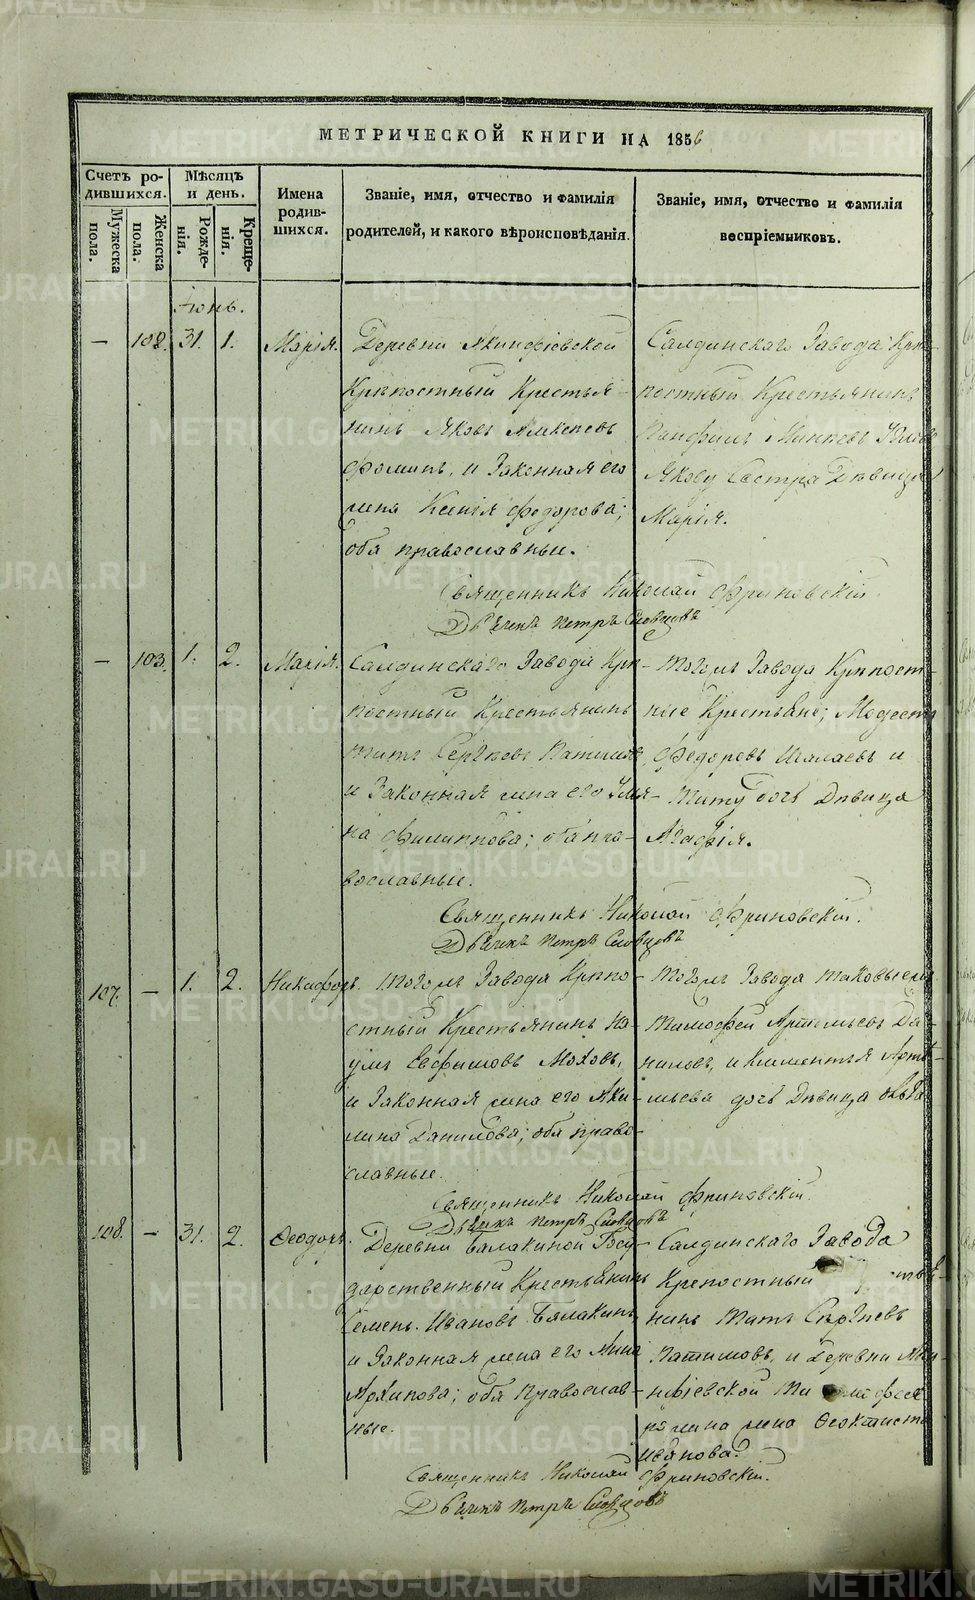 МЕТРИЧЕСКОЙ КНИГИ НА 1856
Счетъ ро-
дившихся.
Мужеска
пола.
Женска
пола.
Мѣсяцъ
и день.
Рожде-
нія.
Креще-
нія.
Имена
родив-
шихся.
Званіе, имя, отчество и фамилія
родителей, и какого вѣроисповѣданія.
Званіе, имя, отчество и фамилія
воспріемниковъ.
Іюнь.
— 102. 31. 1. Марія.
Деревни Акинфіевской
Крѣпостный Крестья-
нинъ Яковъ Алексѣевъ
Фоминъ, и Законная его
жена Ксенія Федорова;
оба православные.
Салдинскаго Завода Крѣ-
постный Крестьянинъ
Панфилъ
Якову Сестра Дѣвица
Марія.
Священникъ Николай Фриновскій
Дьячекъ Петръ Словцовъ
— 103. 1. 2. Марія.
Салдинскаго Завода Крѣ-
постный Крестьянинъ
Титъ Сергѣевъ
и Законная жена его Улья-
на Филиппова; оба пра-
вославные.
Тогожъ Завода Крѣпост-
ные Крестьяне; Модестъ
Федоровъ Шалаевъ и
Титу дочь Дѣвица
Агафія.
Священникъ Николай Фриновскій.
Дьячекъ Петръ Словцовъ
107. — 1. 2. Никифоръ.
Тогожъ Завода Крѣпо-
стный Крестьянинъ На-
умъ Евфимовъ Моховъ,
и Законная жена его Аки-
лина Данилова; оба право-
славные.
Тогожъ Завода таковые жъ
Тимофей Артемьевъ Да-
ниловъ, и Климентья Артё-
мьева дочь Дѣвица
Священникъ Николай Фриновскій.
Дьячекъ Петръ Словцовъ
108. — 31. 2. Ѳеодоръ.
Деревни Балакиной Госу-
дарственный Крестьянинъ
Семенъ Ивановъ Балакинъ,
и Законная жена его Анна
Архипова; оба Православ-
ные.
Салдинскаго Завода
Крепостный
нинъ Титъ Сергѣевъ
и Деревни Аки-
нфіевской
жена Ѳеоктиста
Иванова.
Священникъ Николай Фриновскій.
Дьячекъ Петръ Словцовъ
METRIKI.GASO-URAL.RU